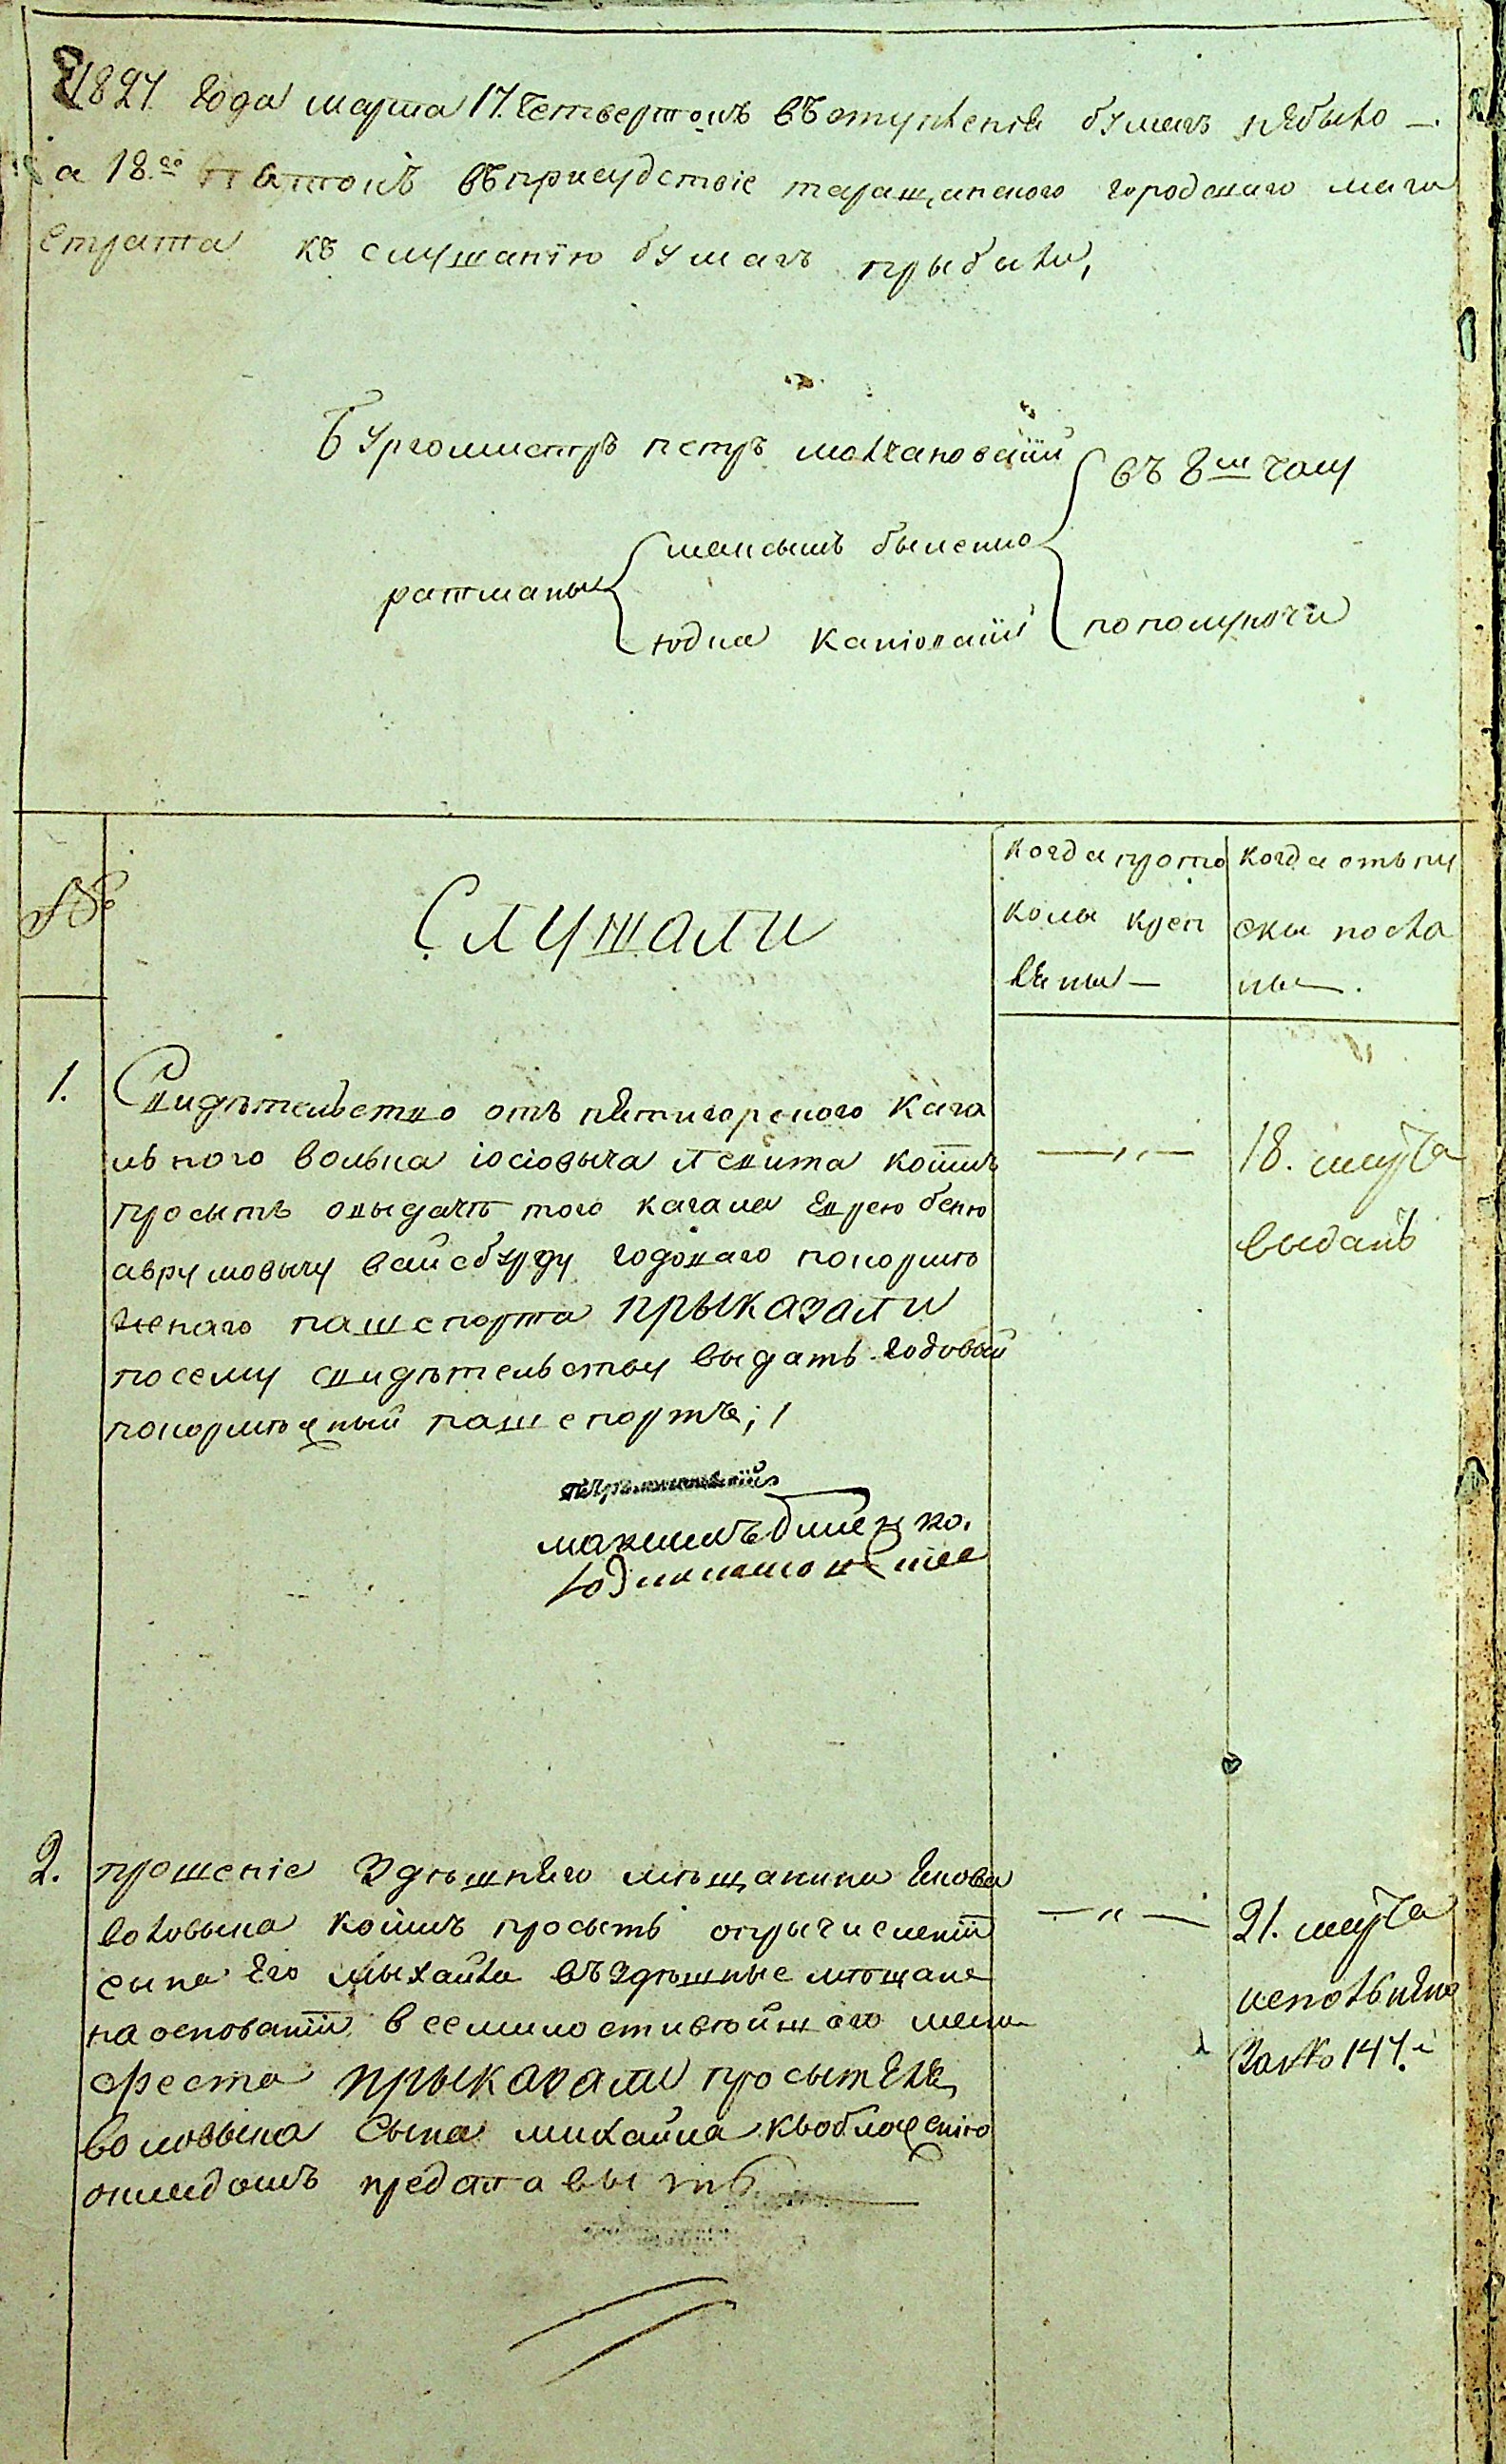 1827 года марта 17. Четвертокъ въ ступленіи бумагъ небыло —
а 18.го пятокъ въ присудствіе таращанского городскаго маги
страта къ слушанію бумагъ прыбыли,
Бургомистръ петръ молчановскій
въ 8м часу
ратманы
максымъ быленко
юдка каніовскій
пополуночи
№
Слушали
когда прото
колы креп
лены —
когда отъпу
скы посла
ны —.
1.
Свидѣтельство отъ пятигорского кага
льного волька іосіовыча левита коимъ
просытъ овыдачѣ того кагала Еврею беню
аврумовычу вайсбурду годоваго покормѣ
женаго пашспорта прыказали
посему свидѣтельству выдать годовый
покормѣжный пашспортъ; /
— „ —
18. марта
выданъ
максимъ биленко.
2.
прошеніе Здѣшнего мѣщанина Якова
воловыка коимъ просытъ опрычисленіи
сына Его мыхайла въ здѣшные мѣщане
на основаніи всемилостивѣйшаго мани
феста прыказали просытеля
воловыка Сына михайла къ обложенію
окладомъ представыть —
— „ —
21. марта
исполънено
За № 147.і